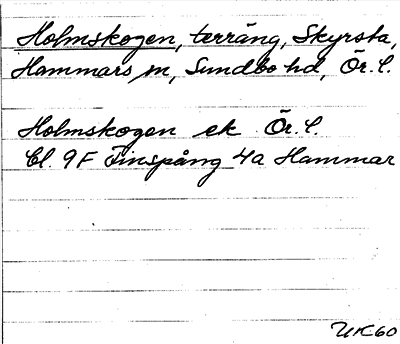 Holmskogen, terräng, Skyrsta,
Hammars sn, Sundbo hd, Ör. l.
Holmskogen ek Ör. l.
Bl. 9F Finspång 4a Hammar
UK60